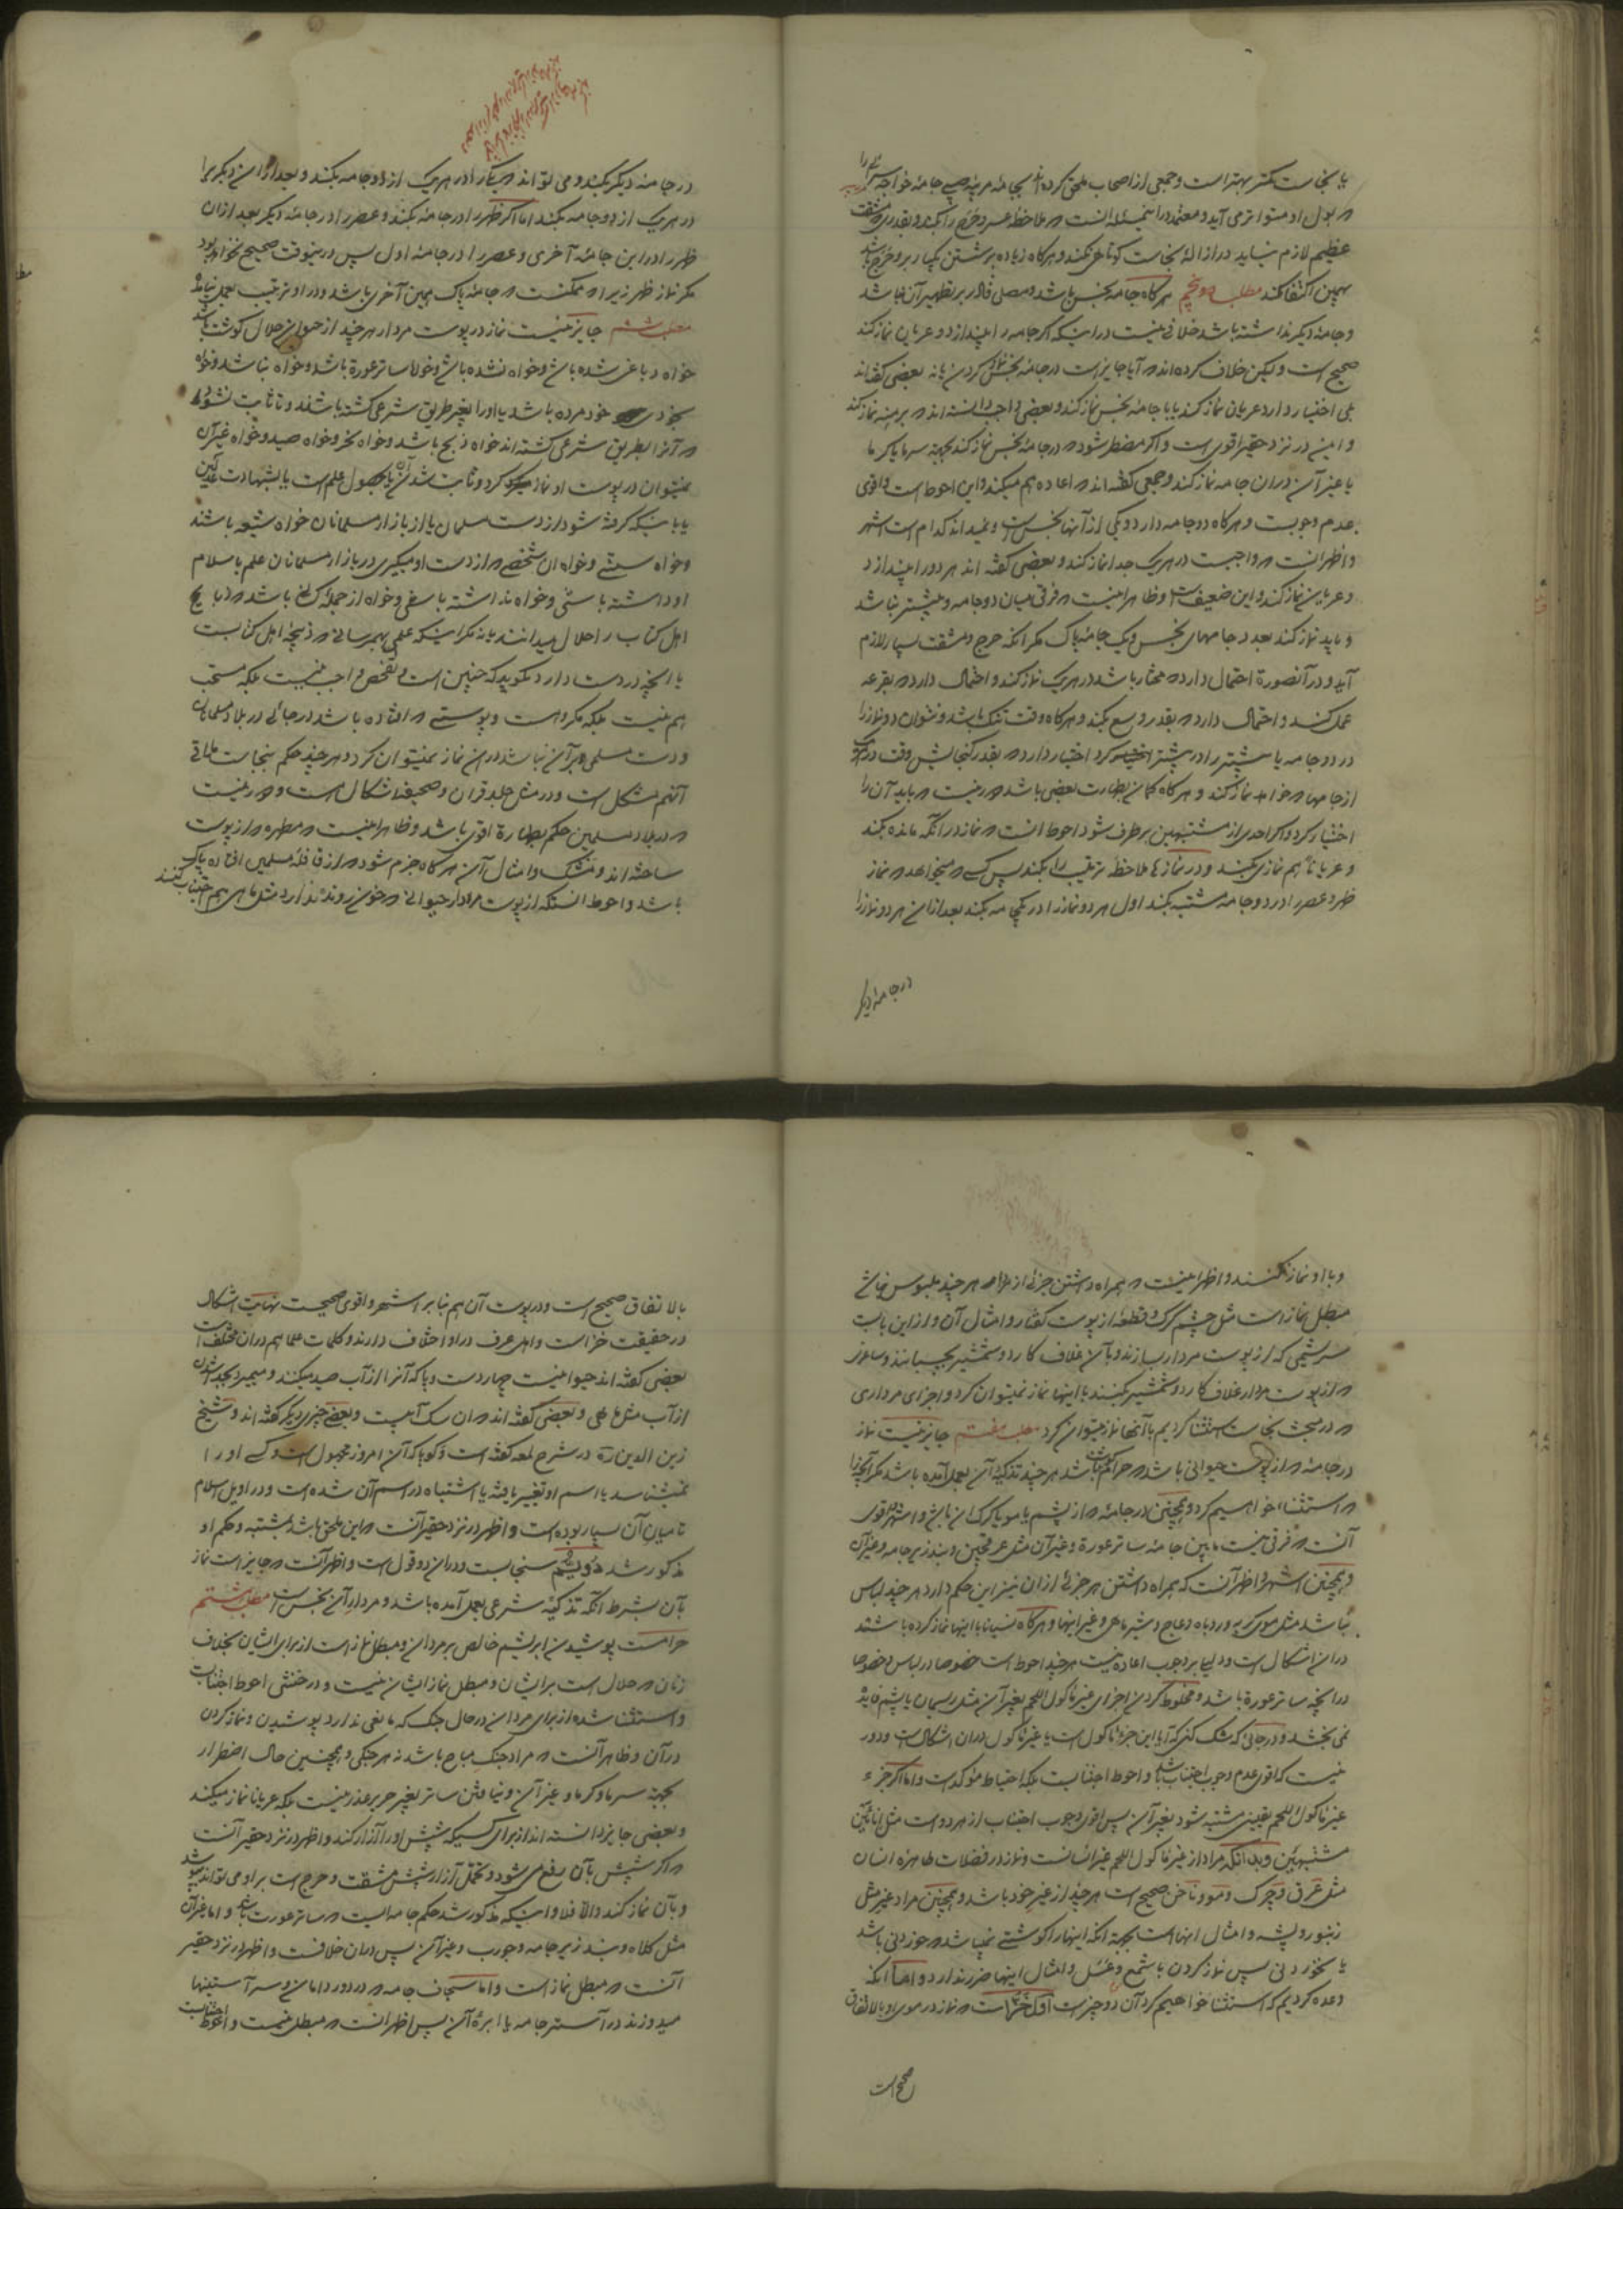 یا نجاست کمتر بهتر است و جمعی از اصحاب ملحق کرده‌اند بجامهٔ مربیه صبی جامهٔ خواجه سرائی را
که بول او متواتر می آید و معتمد در این مسئله آنست که ملاحظه عسر و حرج را بکند و بقدری که مشقت
عظیم لازم نیاید در ازالهٔ نجاست کوتاهی نکند و هرگاه زیاده بر شستن یکبار بر او حرج باشد
بهمین اکتفا کند مطلب پنجم هرگاه جامه نجس باشد و مصلی قادر بر تطهیر آن نباشد
و جامهٔ دیگر نداشته باشد خلافی نیست در اینکه اگر جامه را بیندازد و عریان نماز کند
صحیح است و لیکن خلاف کرده‌اند که آیا جایز است در جامهٔ نجس نماز کردن یا نه بعضی گفته‌اند
بلی اختیار دارد عریان نماز کند یا با جامهٔ نجس نماز کند و بعضی واجب دانسته‌اند که برهنه نماز کند
و این در نزد حقیر اقوی است و اگر مضطر شود که در جامهٔ نجس نماز کند بجهة سرما یا گرما
یا غیر آن در آن جامه نماز کند و جمعی گفته‌اند که اعاده هم میکند و این احوط است و اقوی
عدم وجوبست و هرگاه دو جامه دارد و یکی از آنها نجس است و نمیداند کدام است اشهر
و اظهر آنست که واجبست در هر یک جدا نماز کند و بعضی گفته‌اند هر دو را بیندازد
و عریان نماز کند و این ضعیف است و ظاهر اینست که فرقی میان دو جامه و بیشتر نباشد
و باید نماز کند بعدد جامهای نجس و یک جامهٔ پاک مگر آنکه حرج و مشقت بسیار لازم
آید و در آنصورة احتمال دارد که مختار باشد در هر یک نماز کند و احتمال دارد که بقرعه
عمل کند و احتمال دارد که بقدر وسع بکند و هرگاه وقت تنگ باشد و نتوان دو نماز را
در دو جامه یا بیشتر را در بیشتر کرد اختیار دارد که بقدر گنجایش وقت در هر یک
از جامها که خواهد نماز کند و هرگاه گمان بطهارت بعضی باشد دور نیست که باید آن را
اختیار کرد و اگر احدی از مشتبهین برطرف شود احوط آنست که نماز در آنکه مانده بکند
و عریاناً هم نمازی بکند و در نمازها ملاحظه ترتیب را بکند پس کسی که میخواهد که نماز
ظهر و عصر را در دو جامه مشتبه بکند اول هر دو نماز را در یکجامه بکند بعد از آن هر دو نماز را
در جامهٔ دیگر
در جامهٔ دیگر بکند و می تواند که یکبار در هر یک از دو جامه بکند و بعد از آن دیگر را
در هر یک از دو جامه بکند اما اگر ظهر را در جامهٔ بکند و عصر را در جامهٔ دیگر بعد از آن
ظهر را در این جامهٔ آخری و عصر را در جامهٔ اول پس در اینوقت صحیح نخواهد بود
مگر نماز ظهر زیرا که ممکنست که جامهٔ پاک همین آخری باشد و در او ترتیب بعمل نیامده باشد
مطلب ششم جایز نیست نماز در پوست مردار هر چند از حیوان حلال گوشت باشد
خواه دباغی شده باشد و خواه نشده باشد و خواه ساتر عورة باشد و خواه نباشد و خواه
بخودی خود مرده باشد یا او را بغیر طریق شرعی کشته باشند و تا ثابت نشود
که آنرا بطریق شرعی کشته‌اند خواه ذبح باشد و خواه نحر و خواه صید و خواه غیر آن
نمیتوان در پوست او نماز کرد و ثابت شدن آن یا بحصول علم است یا بشهادت عدلین
یا باینکه گرفته شود از دست مسلمان یا از بازار مسلمانان خواه شیعه باشند
و خواه سنی و خواه آن شخصی که از دست او میگیری در بازار مسلمانان علم باسلام
او داشته باشی و خواه نداشته باشی و خواه از جمله کسانی باشد که ذبایح
اهل کتاب را حلال میدانند یا نه مگر اینکه علمی بهمرسانی که ذبیحهٔ اهل کتابست
یا آنچه در دست دارد بگوید که چنین است و تفحص واجب نیست بلکه مستحب
هم نیست بلکه مکروه است و پوستی که افتاده باشد در جائی در بلاد مسلمانان
و دست مسلمی بر آن نباشد در آن نماز نمیتوان کرد و هر چند حکم بنجاست ملاقی
آنهم مشکل است و در مثل جلد قرآن و صحیفه اشکال است و دور نیست
که در بلاد مسلمین حکم بطهارة اقوی باشد و ظاهر اینست که مطهره که از پوست
ساخته‌اند و مشک و امثال آن هرگاه جزم شود که از قافلهٔ مسلمین افتاده پاک
باشد و احوط آنستکه از پوست مردار حیوانی که خون رونده ندارد مثل ماهی هم اجتناب کنند
و با او نماز نکنند و اظهر اینست که همراه داشتن جزئی از مردار هر چند ملبوس نباشد
مبطل نماز است مثل چشم گرگ و قطعهٔ از پوست کفتار و امثال آن و از این بابست
سریشمی که از پوست مردار بسازند و با آن غلاف کارد و شمشیر بچسبانند و ساغری
که از پوست مردار غلاف کارد و شمشیر بکنند با اینها نماز نمیتوان کرد و اجزای مرداری
که در مبحث نجاسات استثنا کردیم با آنها نماز میتوان کرد مطلب هفتم جایز نیست نماز
در جامهٔ که از پوست حیوانی باشد که حرام گوشت باشد هر چند تذکیهٔ آن بعمل آمده باشد مگر آنچه را
که استثنا خواهیم کرد و همچنین در جامهٔ که از پشم یا مو یا کرک آن باشد و اشهر و اقوی
آنست که فرقی نیست ما بین جامه ساتر عورة و غیر آن مثل عرقچین و بند زیرجامه و غیر آن
و همچنین اشهر و اظهر آنست که همراه داشتن هر جزئی از آن نیز این حکم دارد هر چند لباس
نباشد مثل موی گربه و روباه و عاج و شیر ماهی و غیر اینها و هرگاه نسیانا با اینها نماز کرده باشند
در آن اشکال است و دلیل بر وجوب اعاده نیست هر چند احوط است خصوصا در لباس و خصوصا
در آنچه ساتر عورة باشد و مخلوط کردن اجزای غیر مأکول اللحم بغیر آن مثل ریسمان یا پشم فایدهٔ
نمی بخشد و در جائی که شک کنی که آیا این جزء مأکول است یا غیر مأکول در آن اشکال است و دور
نیست که اقوی عدم وجوب اجتناب باشد و احوط اجتنابست بلکه احتیاط مؤکد است و اما اگر جزء
غیر مأکول اللحم یقینی مشتبه شود بغیر آن پس اقوی وجوب اجتناب از هر دو است مثل انائین
مشتبهین و بدانکه مراد از غیر مأکول اللحم غیر انسانست و نماز در فضلات طاهرهٔ انسان
مثل عرق و چرک و مو و ناخن صحیح است هر چند از غیر خود باشد و همچنین مراد غیر مثل
زنبور و پشه و امثال اینها است بجهة آنکه اینها را گوشتی نمیباشد که خوردنی باشد
یا نخوردنی پس نماز کردن با شمع و عسل و امثال اینها ضرر ندارد و اما آنکه
وعده کردیم که استثنا خواهیم کرد آن دو چیز است اول خز است که نماز در موی او بالاتفاق
صحیح است
بالاتفاق صحیح است و در پوست آن هم بنا بر اشهر و اقوی صحیحست نهایت اشکال
در حقیقت خز است و اهل عرف در او اختلاف دارند و کلمات علما هم در آن مختلف است
بعضی گفته‌اند حیوانیست چهار دست و پا که آنرا از آب صید میکنند و میمیرد بجدا شدن
از آب مثل ماهی و بعضی گفته‌اند که آن سگ آبیست و بعضی چیزی دیگر گفته‌اند و شیخ
زین الدین ره در شرح لمعه گفته است و گویا که آن امروز مجهول است و کسی او را
نمیشناسد یا اسم او تغییر یافته یا اشتباه در اسم آن شده است و در اوایل اسلام
تا میان آن بسیار بوده است و اظهر در نزد حقیر آنست که این ملحق باشد بمشتبه و حکم او
مذکور شد دویم سنجابست و در آن دو قول است و اظهر آنست که جایز است نماز
بآن بشرط آنکه تذکیهٔ شرعی بعمل آمده باشد و مردار آن نجس است مطلب هشتم
حرامست پوشیدن ابریشم خالص بر مردان و مبطل نماز است از برای ایشان بخلاف
زنان که حلال است بر ایشان و مبطل نماز ایشان نیست و در خنثی احوط اجتنابست
و استثنا شده از برای مردان در حال جنگ که مانعی ندارد پوشیدن و نماز کردن
در آن و ظاهر آنست که مراد جنگ مباح باشد نه هر جنگی و همچنین حال اضطرار
بجهة سرما و گرما و غیر آن و نیافتن ساتر بغیر حریر عذر نیست بلکه عریانا نماز میکند
و بعضی جایز دانسته‌اند از برای کسیکه شپش او را آزار کند و اظهر در نزد حقیر آنست
که اگر شپش بآن رفع می شود و تحمل آزار شپش مشقت و حرج است بر او می تواند پوشید
و بآن نماز کند و الا فلا و اینکه مذکور شد حکم جامه ایست که ساتر عورت باشد و اما غیر آن
مثل کلاه و بند زیرجامه و جورب و غیر آن پس در آن خلافست و اظهر در نزد حقیر
آنست که مبطل نماز است و اما سنجاف جامه که در دور دامان و سر آستینها
میدوزند در آستر جامه یا ابرهٔ آن پس اظهر آنست که مبطل نیست و احوط اجتنابست